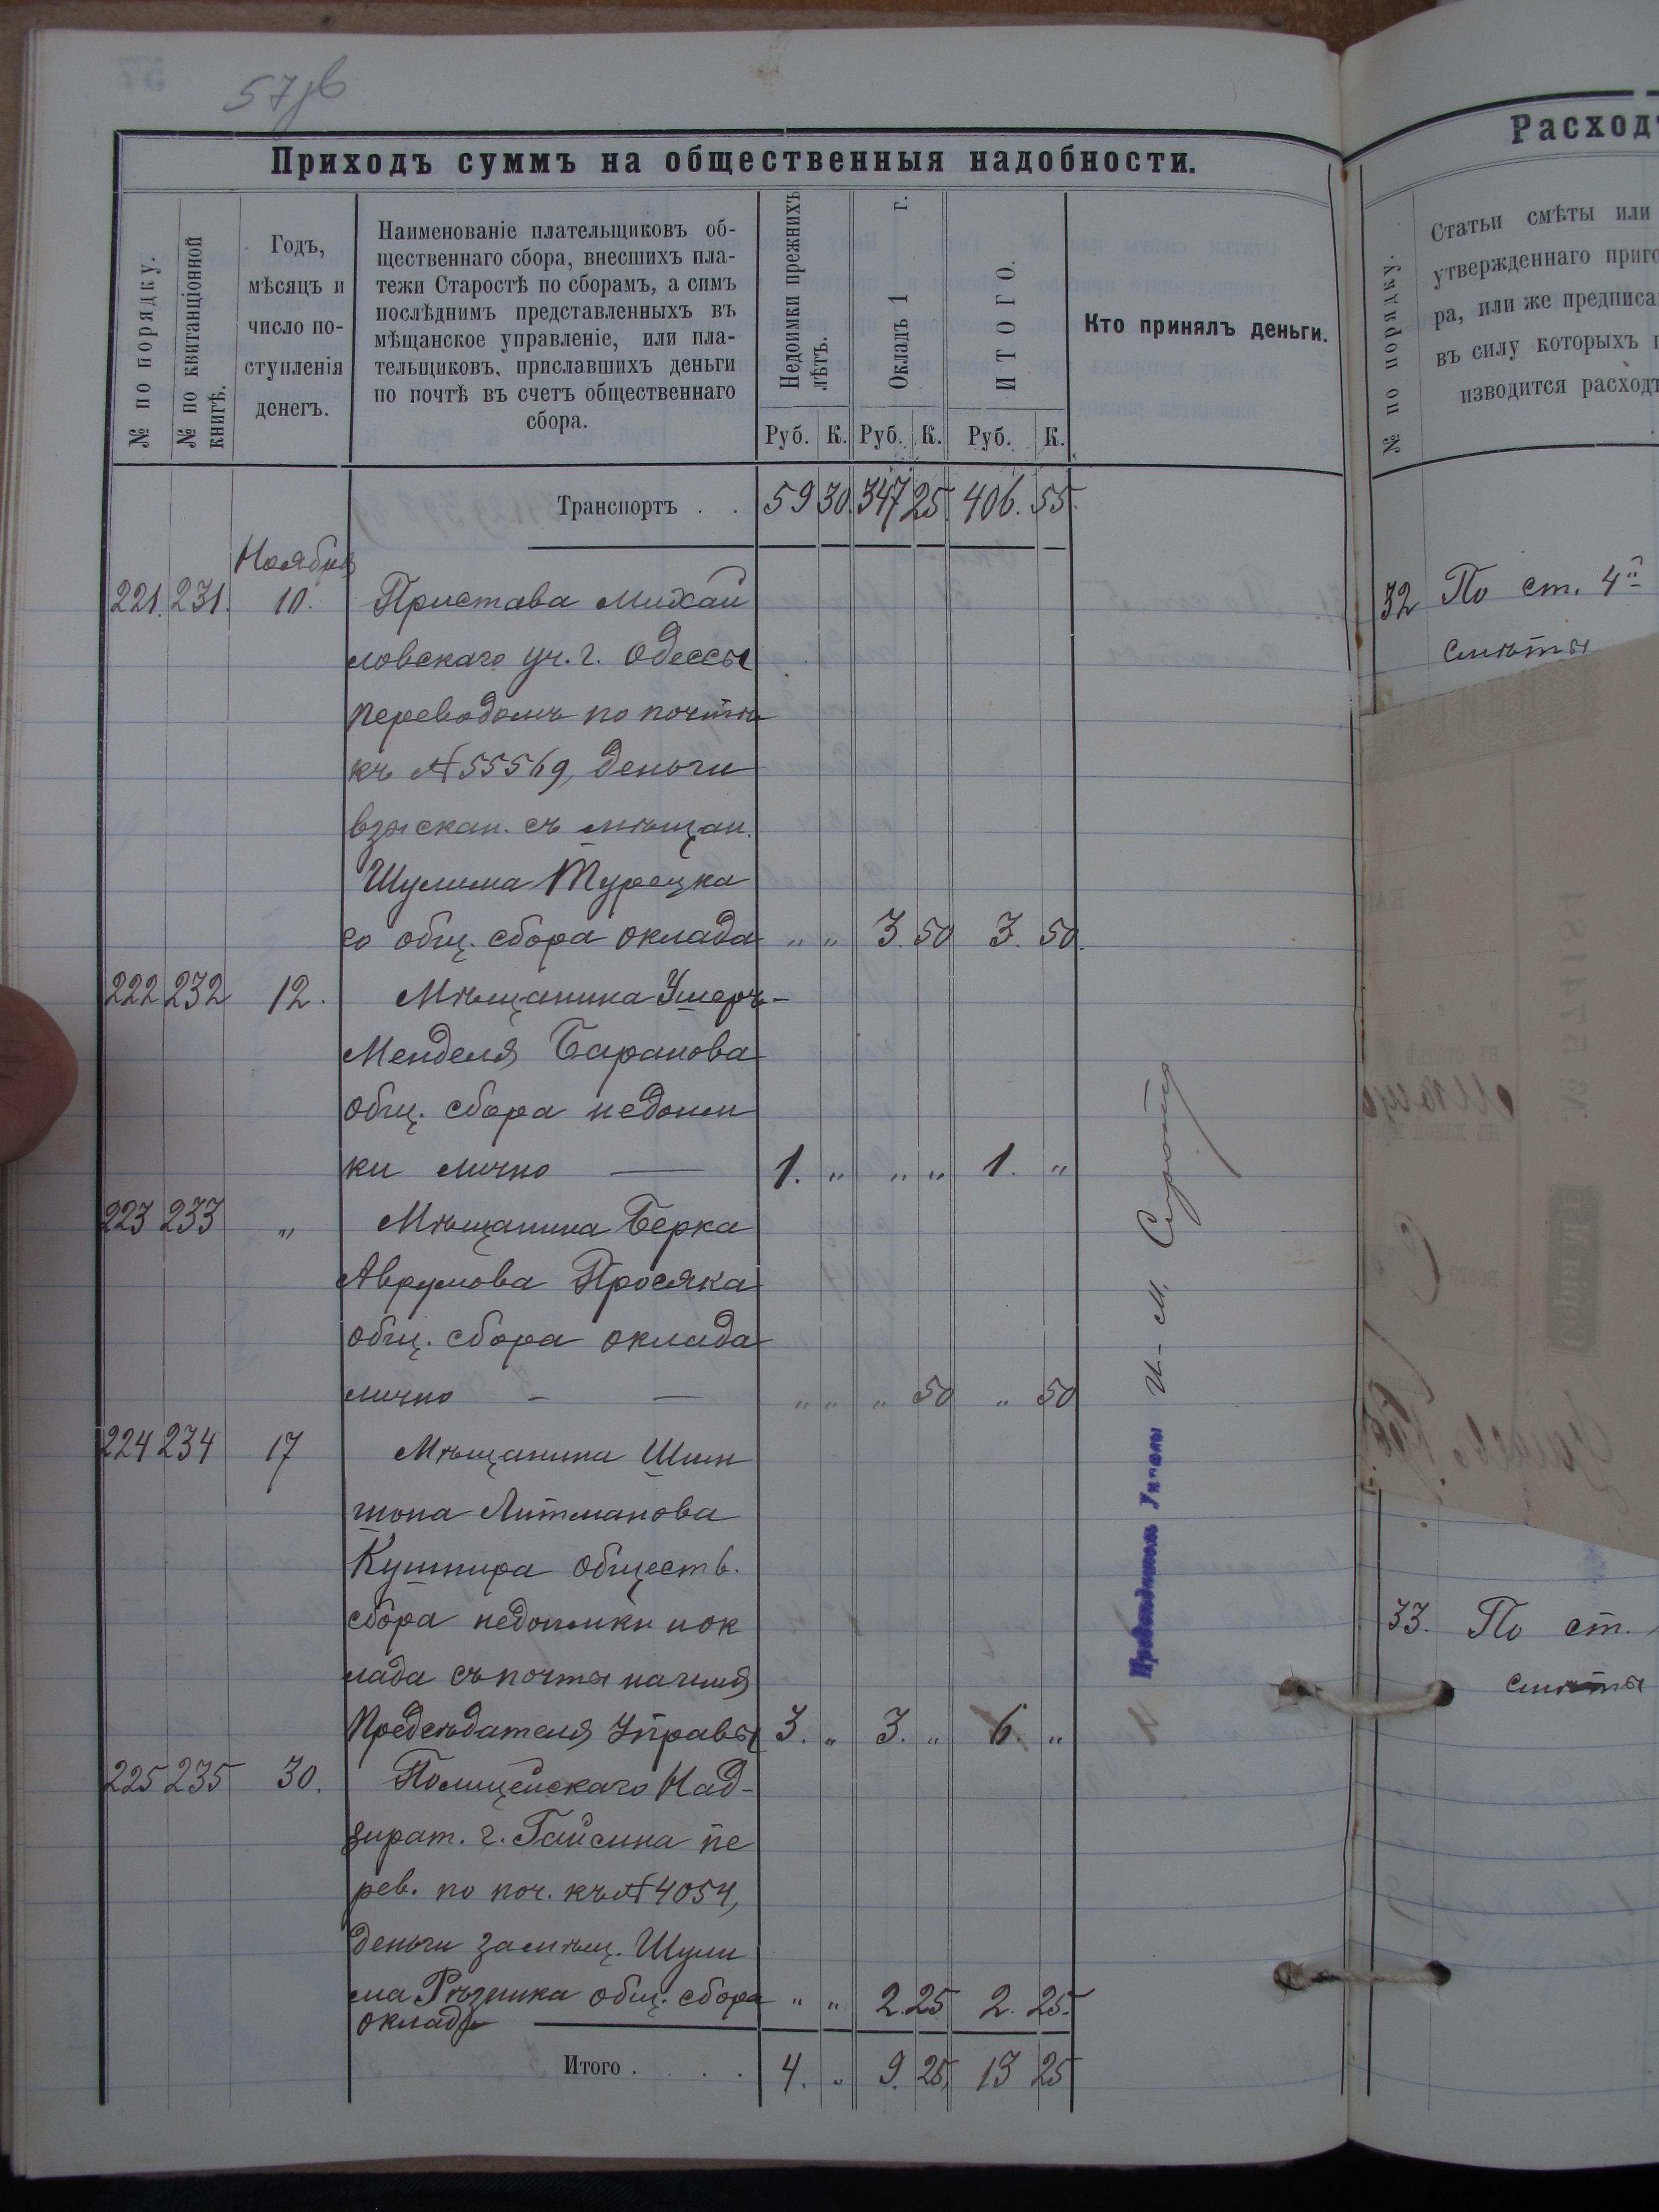 57 об
Приходъ суммъ на общественныя надобности.
№ по порядку.
№ по квитанціонной книгѣ.
Годъ,
мѣсяцъ и
число по-
ступленія
денегъ.
Наименованіе плательщиковъ об-
щественнаго сбора, внесшихъ пла-
тежи Старостѣ по сборамъ, а симъ
послѣднимъ представленныхъ въ
мѣщанское управленіе, или пла-
тельщиковъ, приславшихъ деньги
по почтѣ въ счетъ общественнаго
сбора.
Недоимки прежнихъ
лѣтъ.
Окладъ 1 г.
ИТОГО.
Кто принялъ деньги.
Руб. К. Руб. К. Руб. К.
Транспортъ . . 59 30. 347 25. 406. 55.
Ноября
221. 231. 10. Пристава Михай
ловскаго уч. г. Одессы
переводомъ по почтѣ
къ №55569, деньги
взыскан. съ мѣщан.
Шулима Турецка
го общ. сбора оклада „ „ 3. 50 3. 50.
222 232 12. Мѣщанина Ушеръ-
Менделя Баранова
общ. сбора недоим
ки лично — 1. „ „ „ 1. „
223 233 „ Мѣщанина Берка
Аврумова Просяка
общ. сбора оклада
лично - — „ „ „ 50 „ 50
224 234 17 Мѣщанина Шим
шона Литманова
Кушнира обществ.
сбора недоимки и ок
лада съ почты на имя
Предсѣдателя Управы 3. „ 3. „ 6. „
225 235 30. Полицейскаго Над-
зират. г. Гайсина пе
рев. по поч. къ №4054,
деньги за мѣщ. Шули
ма Рѣзника общ. сбора „ „ 2. 25 2. 25.
оклада
Итого . . . . 4. „ 9. 25, 13 25
Предсѣдатель Управы И- М.
Расходъ
№ по порядку.
Статьи смѣты или
утвержденнаго приго
ра, или же предписа
въ силу которыхъ п
изводится расходъ
32 По ст. 4й
смѣты
№ 574184
33. По ст.
смѣты